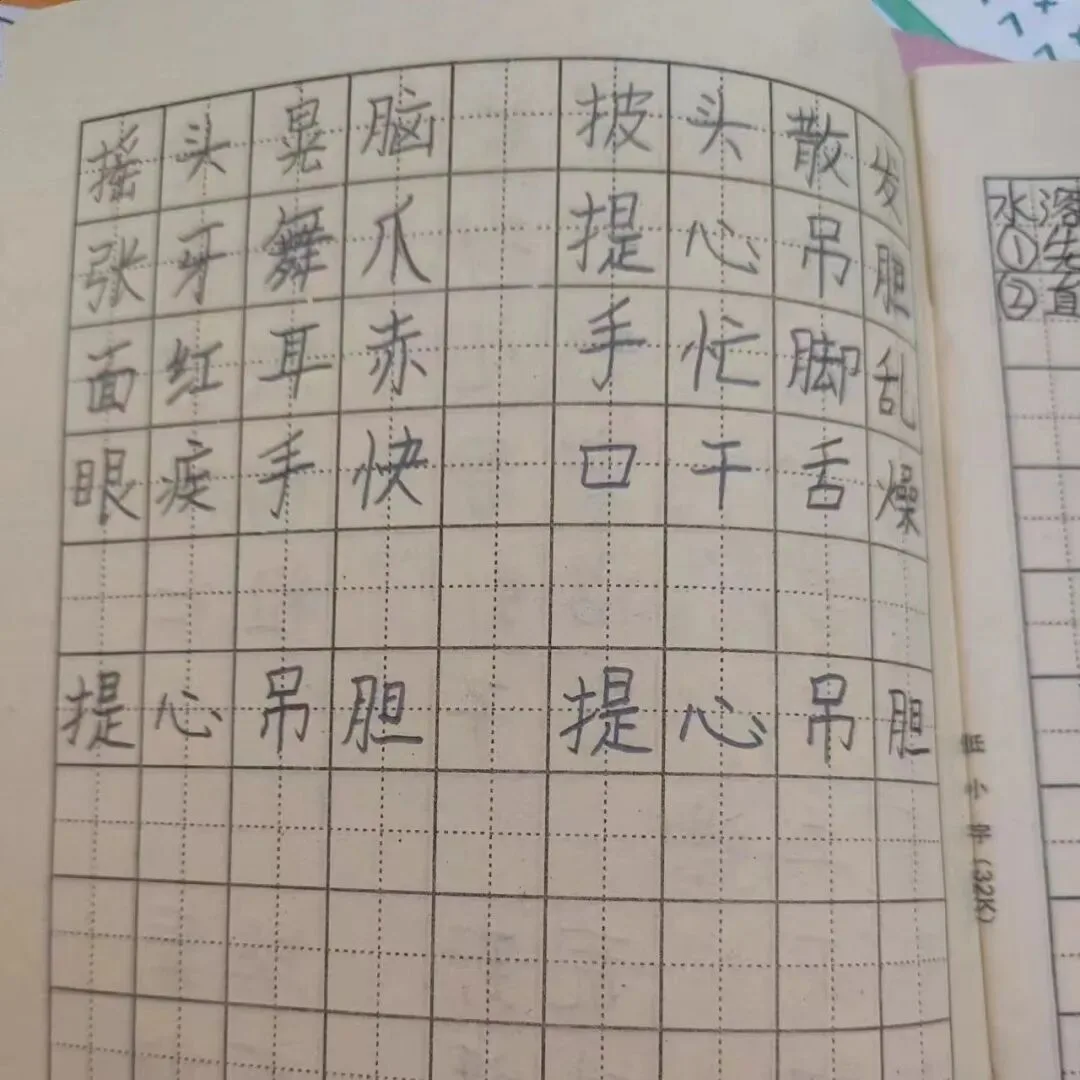 摇头晃脑 披头散发
张牙舞爪 提心吊胆
面红耳赤 手忙脚乱
眼疾手快 口干舌燥
提心吊胆 提心吊胆
水溶
①先
②直
(32K)